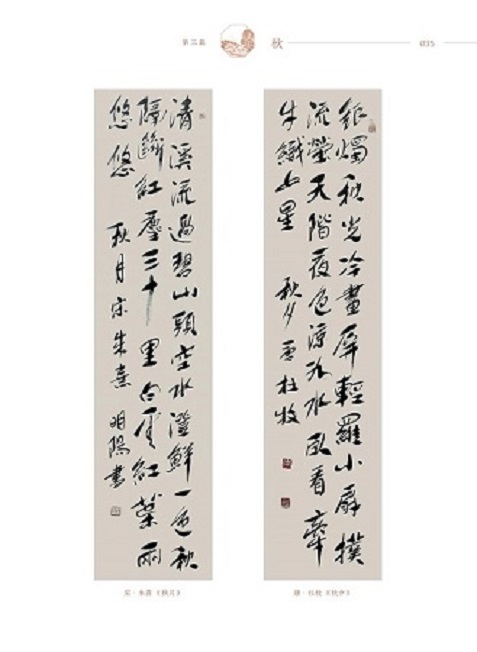 第三篇
秋
035
銀燭秋光冷畫屏輕羅小扇撲
流螢天階夜色涼如水臥看牽
牛織女星 秋夕 唐杜牧
清溪流過碧山頭空水澄鮮一色秋
隔斷紅塵三十里白雲紅葉兩
悠悠 秋月 宋朱熹 明陽書
宋·朱熹《秋月》
唐·杜牧《秋夕》